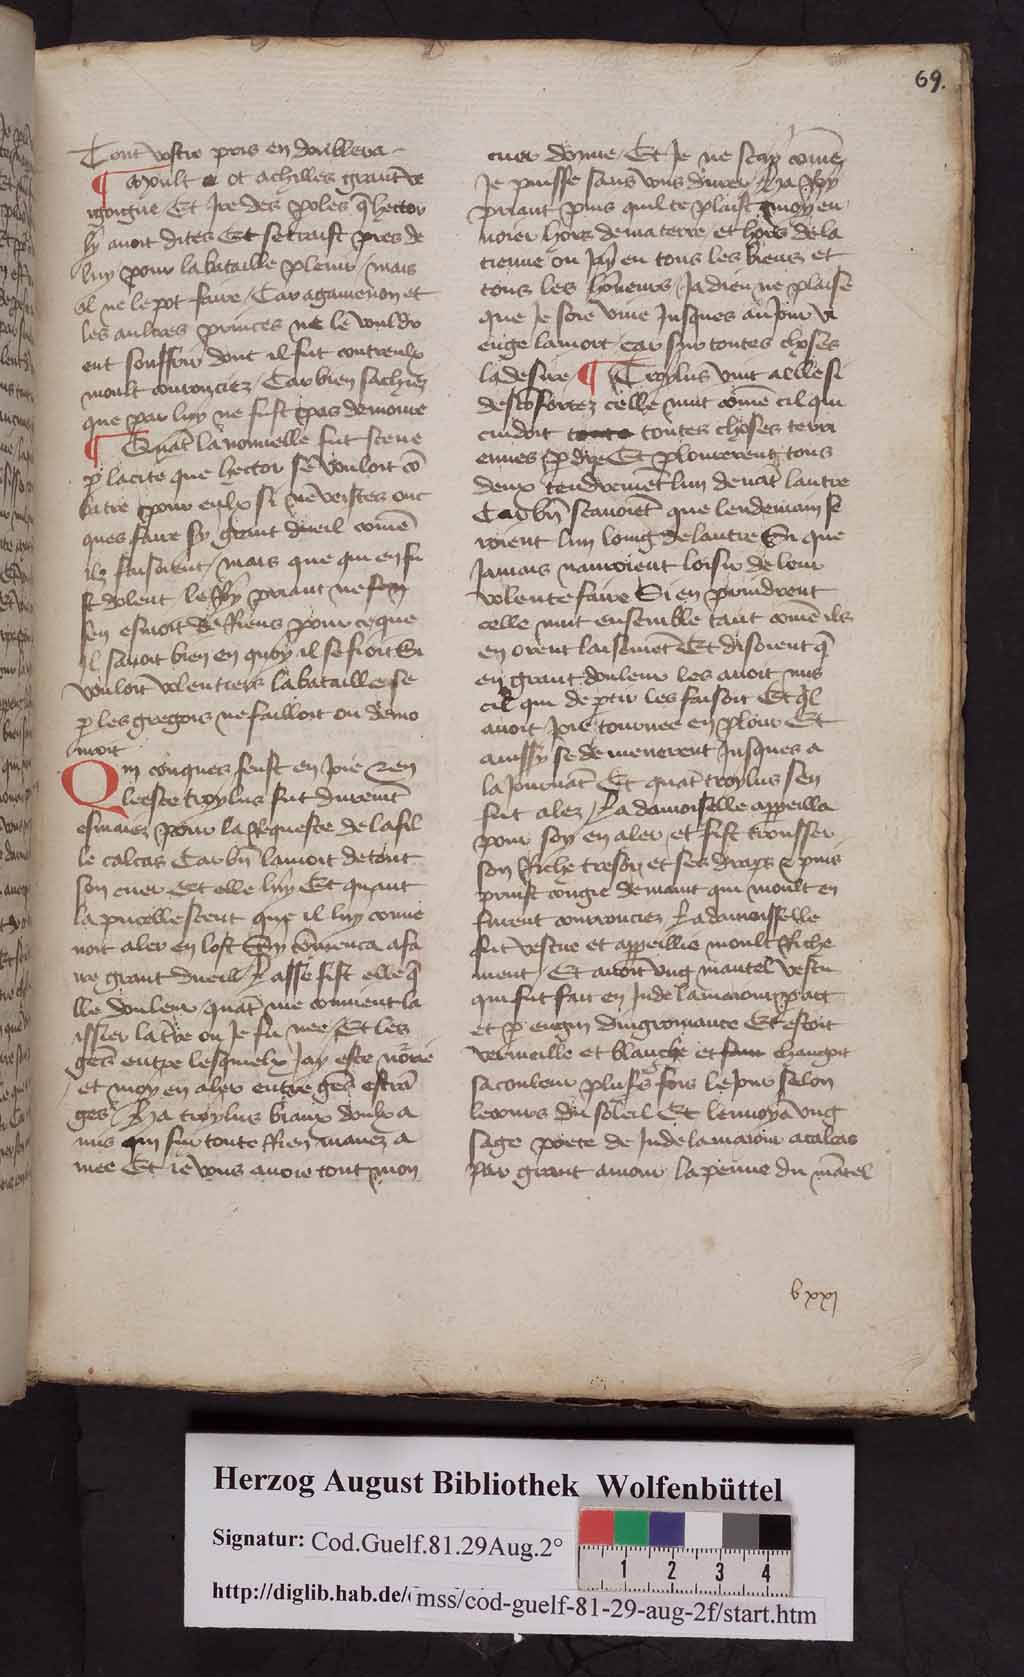 69.
Tout vostre pris en doublera
¶ Moult a ot achilles grant ve
rgoigne Et Ire des poles q̃ hector
ly avoit dites Et se traist pres de
luy pour la bataille plenir / mais
il ne le pot faire / Car agamenon et
les aultres princes ne le vouldr
ent souffrir dont il fut contreulx
moult courouciez / Car bien sachiez
que par luy ne fust pas demoure
¶ Quãt la nouvelle fut sceue
p̱ la cite que hector se vouloit cõ
batre pour eulx si ne veistes onc
ques faire sy grant dueil comẽ
ilz faisoient / mais que qui en fu
st dolent / le Roy priant ne fen
sen esmoit de Riens pour ce que
Il savoit bien en quoy il se fioit Si
vouloit volentiers la bataille se
p̱ les gregois ne failloit ou demo
uroit
Qui conques feust en joie & en
leesce troylus fut durem̃t
esmaiez pour la Requeste de la fil
le calcas Car bñ lamoit de tout
son cuer Et elle luy Et quant
la pucelle sceut que il luy conve
noit aler en lost Sy cõmenca a fa
ire grant dueil / Lasse fist elle q̃
lle douleur quãt me convient la
issier la t̃re ou Je fu nee / Et les
gẽs entre lesquielx Jay este norrie
et moy en aler entre gẽs estrã
ges / Ha troylus biaux doulx a
mis qui sur toute Rien mavez a
mee Et ie vous avoie tout mon
cuer donne / Et Je ne scay comẽt
Je puisse sans vous durer / Ha Roy
priant puis quil te plaist moy en
voier hors de ma terre et hors de la
tienne ou Jay en tous les biens et
tous les hõneurs / Ja dieu ne plaise
que Je soie vive Jusques au Jour Vi
enge la mort car sur toutes choses
la desire / ¶ Troylus vint a elle si
descõfortez celle nuit cõme cil qui
cuidoit toute toutes choses terri
ennes p̱dre Et plourerent tous
deux tendremẽt lun devãt lautre
Car bñ scavoiẽt que lendemain se
roient lun loing de lautre Si que
Jamais nauroient loisir de leur
volente faire Si en prindrent
celle nuit ensemble tant cõme ils
en orent laisemẽt Et disoient q̃
en grant douleur les avoit mis
cil qui de p̱tir les faisoit Et q̃l
avoit Joie tournee en plour Et
ainssy se demenerent Jusques a
la Journãt Et quãt troylus sen
fut alez / La damoiselle appeilla
pour soy en aler et fist trousser
son Riche tresor et ses draps & puis
prinst congie de maint qui moult en
furent courrouciez La damoisselle
fut vestue et appeillie moult Riche
ment / Et avoit ung mantel vestu
qui fut fait en Jnde la maiour p̱ art
et p̱ engin dingromance Et estoit
vermeille et blanche et changoit
sa couleur plusr̃s fois le Jour selon
le cours du soleil Et lenvoyã ung
sage poete de Jnde la maiour a calcas
Par grant amour / la penne du mãtel
b xxj
Herzog August Bibliothek Wolfenbüttel
Signatur: Cod.Guelf.81.29Aug.2°
http://diglib.hab.de/mss/cod-guelf-81-29-aug-2f/start.htm
1 2 3 4